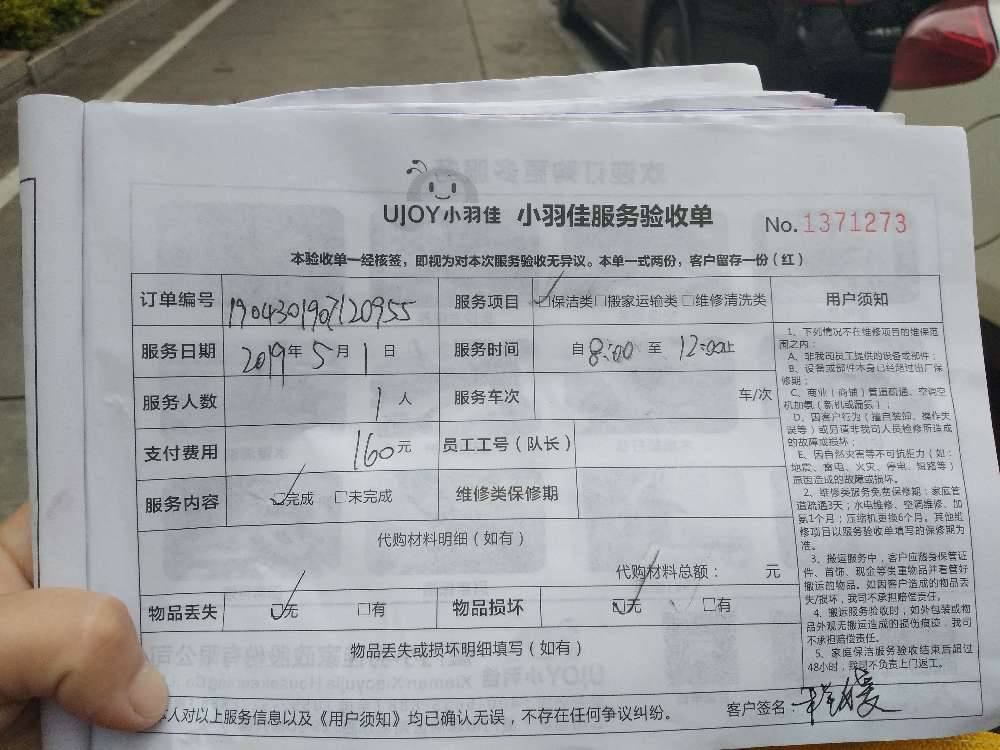 UJOY小羽佳 小羽佳服务验收单 No.1371273
本验收单一经核签，即视为对本次服务验收无异议。本单一式两份，客户留存一份（红）
订单编号 服务项目 □保洁类□搬家运输类 □维修清洗类 用户须知
服务日期 2019年 5月 1日 服务时间 自 8:00 至 12:00止
服务人数 1 人 服务车次 车/次
支付费用 160元 员工工号（队长）
服务内容 □完成 □未完成 维修类保修期
代购材料明细（如有）
代购材料总额： 元
物品丢失 □无 □有 物品损坏 □无 □有
物品丢失或损坏明细填写（如有）
1、下列情况不在维修项目的维保范
围之内：
A、非我司员工提供的设备或部件；
B、设备或部件本身已经超过出厂保
修期；
C、商业（商铺）管道疏通、空调空
机加氨（新机或漏氨）；
D、因客户行为（擅自装卸、操作失
误等）或另请非我司人员检修所造成
的故障或损坏；
E、因自然灾害等不可抗拒力（如：
地震、雷电、火灾、停电、短路等）
原因造成的故障或损坏。
2、维修类服务免费保修期：家庭管
道疏通3天；水电维修、空调维修、加
氨1个月；压缩机更换6个月。其他维
修项目以服务验收单填写的保修期为
准。
3、搬运服务中，客户应随身保管证
件、首饰、现金等贵重物品并看管好
搬运的物品。如因客户造成的物品丢
失/损坏，我司不承担赔偿责任。
4、搬运服务验收时，如外包装或物
品外观无搬运造成的损伤痕迹，我司
不承担赔偿责任。
5、家庭保洁服务验收结束后超过
48小时，我司不负责上门返工。
人对以上服务信息以及《用户须知》均已确认无误，不存在任何争议纠纷。 客户签名：